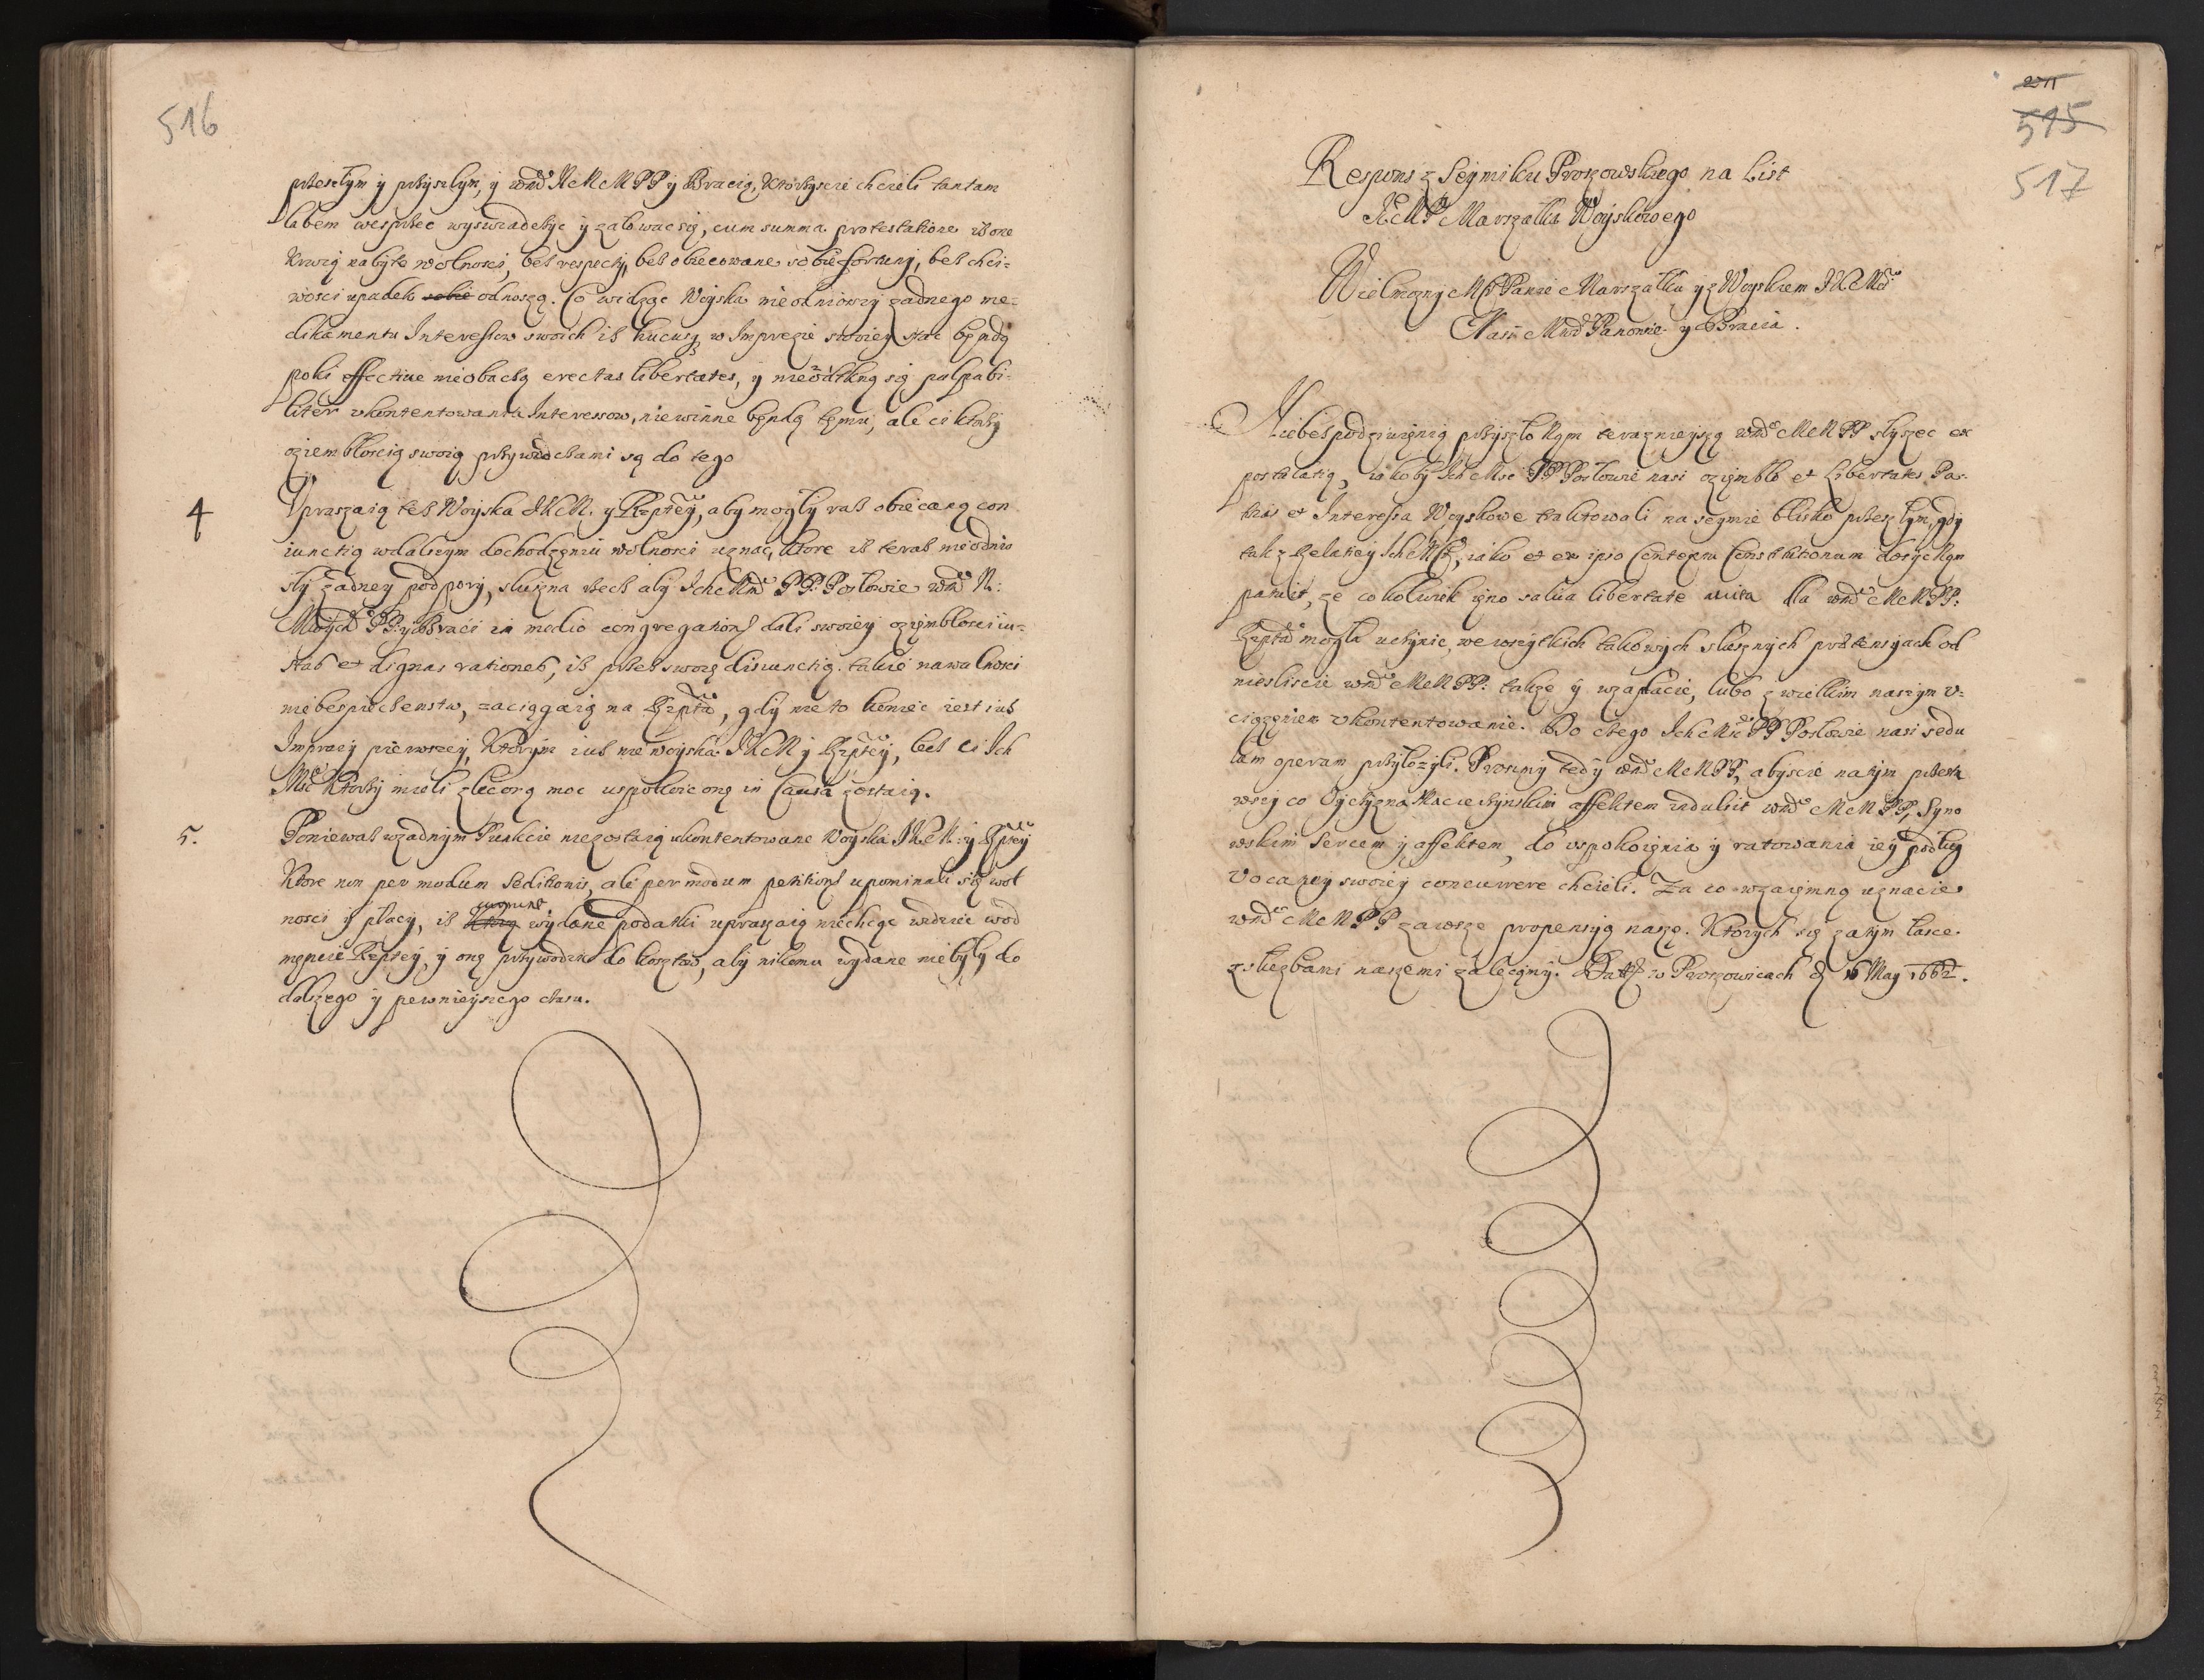 516
przeszłym y przyszłym, y WMć MMMPP y Bracią, Ktorzyscie chcieli tantam
labem wesprzec wyswiadczyc y załowac się, cum summa protestatione iż one
Krwią nabyte wolnosci, bez respectu, bez obiecowane sobie fortuny, bez chci-
wosci upadek sobie odnoszą. Co widząc Woyska nieodniowszy żadnego me-
dikamentu Interessow swoich iż hucusq in Imprezie swoiey stac będą
poki effective nieobaczą erectas libertates, y nieodtkną się palpabi-
liter ukontentowania Interessow, niewinne będą temu, ale ci ktorzy
oziembłoscią swoią przywodcami są do tego
4
Upraszaią tesz Woyska JKM. y Rzptey, aby mogły raz obiecaną con
iunctią wdalszym dochodzeniu wolnosci uznac, ktore iż teraz nieodnio
sły żadney podpory, słuszna rzecz aby IchMć PP. Posłowie WM N:
Mwych PP. y Braci in medio congregationis dali swoiey oziembłosci iu-
stas et dignas rationes, iż przez swoią disiunctią takie nawalnosci
niebespieczenstw, zaciągaią na Rzptą, gdy nie to koniec iest iusz
Imprezy pierwszey, Ktorym iusz nie woyska JKM y Rzptey, lecz ci Ich
Mć Ktorzy mieli zleconą moc uspokoiconą in Causa zostaią.
5.
Poniewasz wżadnym Punkcie niezostaią ukontentowane Woyska JKM. y Rzptey
Ktore non per modum Seditionis, ale per modum petitionis upominali się wol
nosci y płacy, iż wydane podatki upraszaią niechcąc wdawac wod
męncie Rzptey, y oną przywodzic do kosztow, aby nikomu wydane niebyły do
dalszego y pewnieyszego czasu.
271
515
517
Respons z Seymiku Proszowskiego na List
JMP Marszałka Woyskowego
Wielmozny MP Panie Marszałku y z Woyskiem JKMći
Nasz MMć Panowie y Bracia.
Niebespodziwienia przyszło Nąm teraznieyszą WMć MMPP słyszec ex
postulatią, iakoby IchMć PP Posłowie nasi oziembło et Libertates Pa-
trias et Interessa Woyskowe traktowali na seymie blisko przeszłym, gdy
tak z Relatiey IchMć, iako et ex ipso Contextu Constitutionum dosyc Nąm
patuit, ze cokolwiek ieno salva libertate dla WMć MMPP:
Rzpta mogła uczynic, we wszytkich takowych słusznych praetensyach od
niesliscie WMć MMPP: takze y wzapłacie, lubo z wielkim naszym u-
ciązeniem ukontentowanie. Do czego IchMć PP Posłowie nasi sedu
lam operam przyłozyli. Prosiemy tedy WMć MMPP, abyscie natym przesta
wszy co Oyczyzna Macierzynskim affektem indulsit WMć MMPP, Syno
wskim Sercem y affektem, do uspokoienia y ratowania iey podług
Vocatiey swoiey concurrere chcieli. Za co wzaiemną uznacie
WMć MMPP zawsze propensyą naszę. Ktorych się zatym łasce
z słuzbami naszemi zalecamy. Datt w Proszowicach d 16 May 1662.